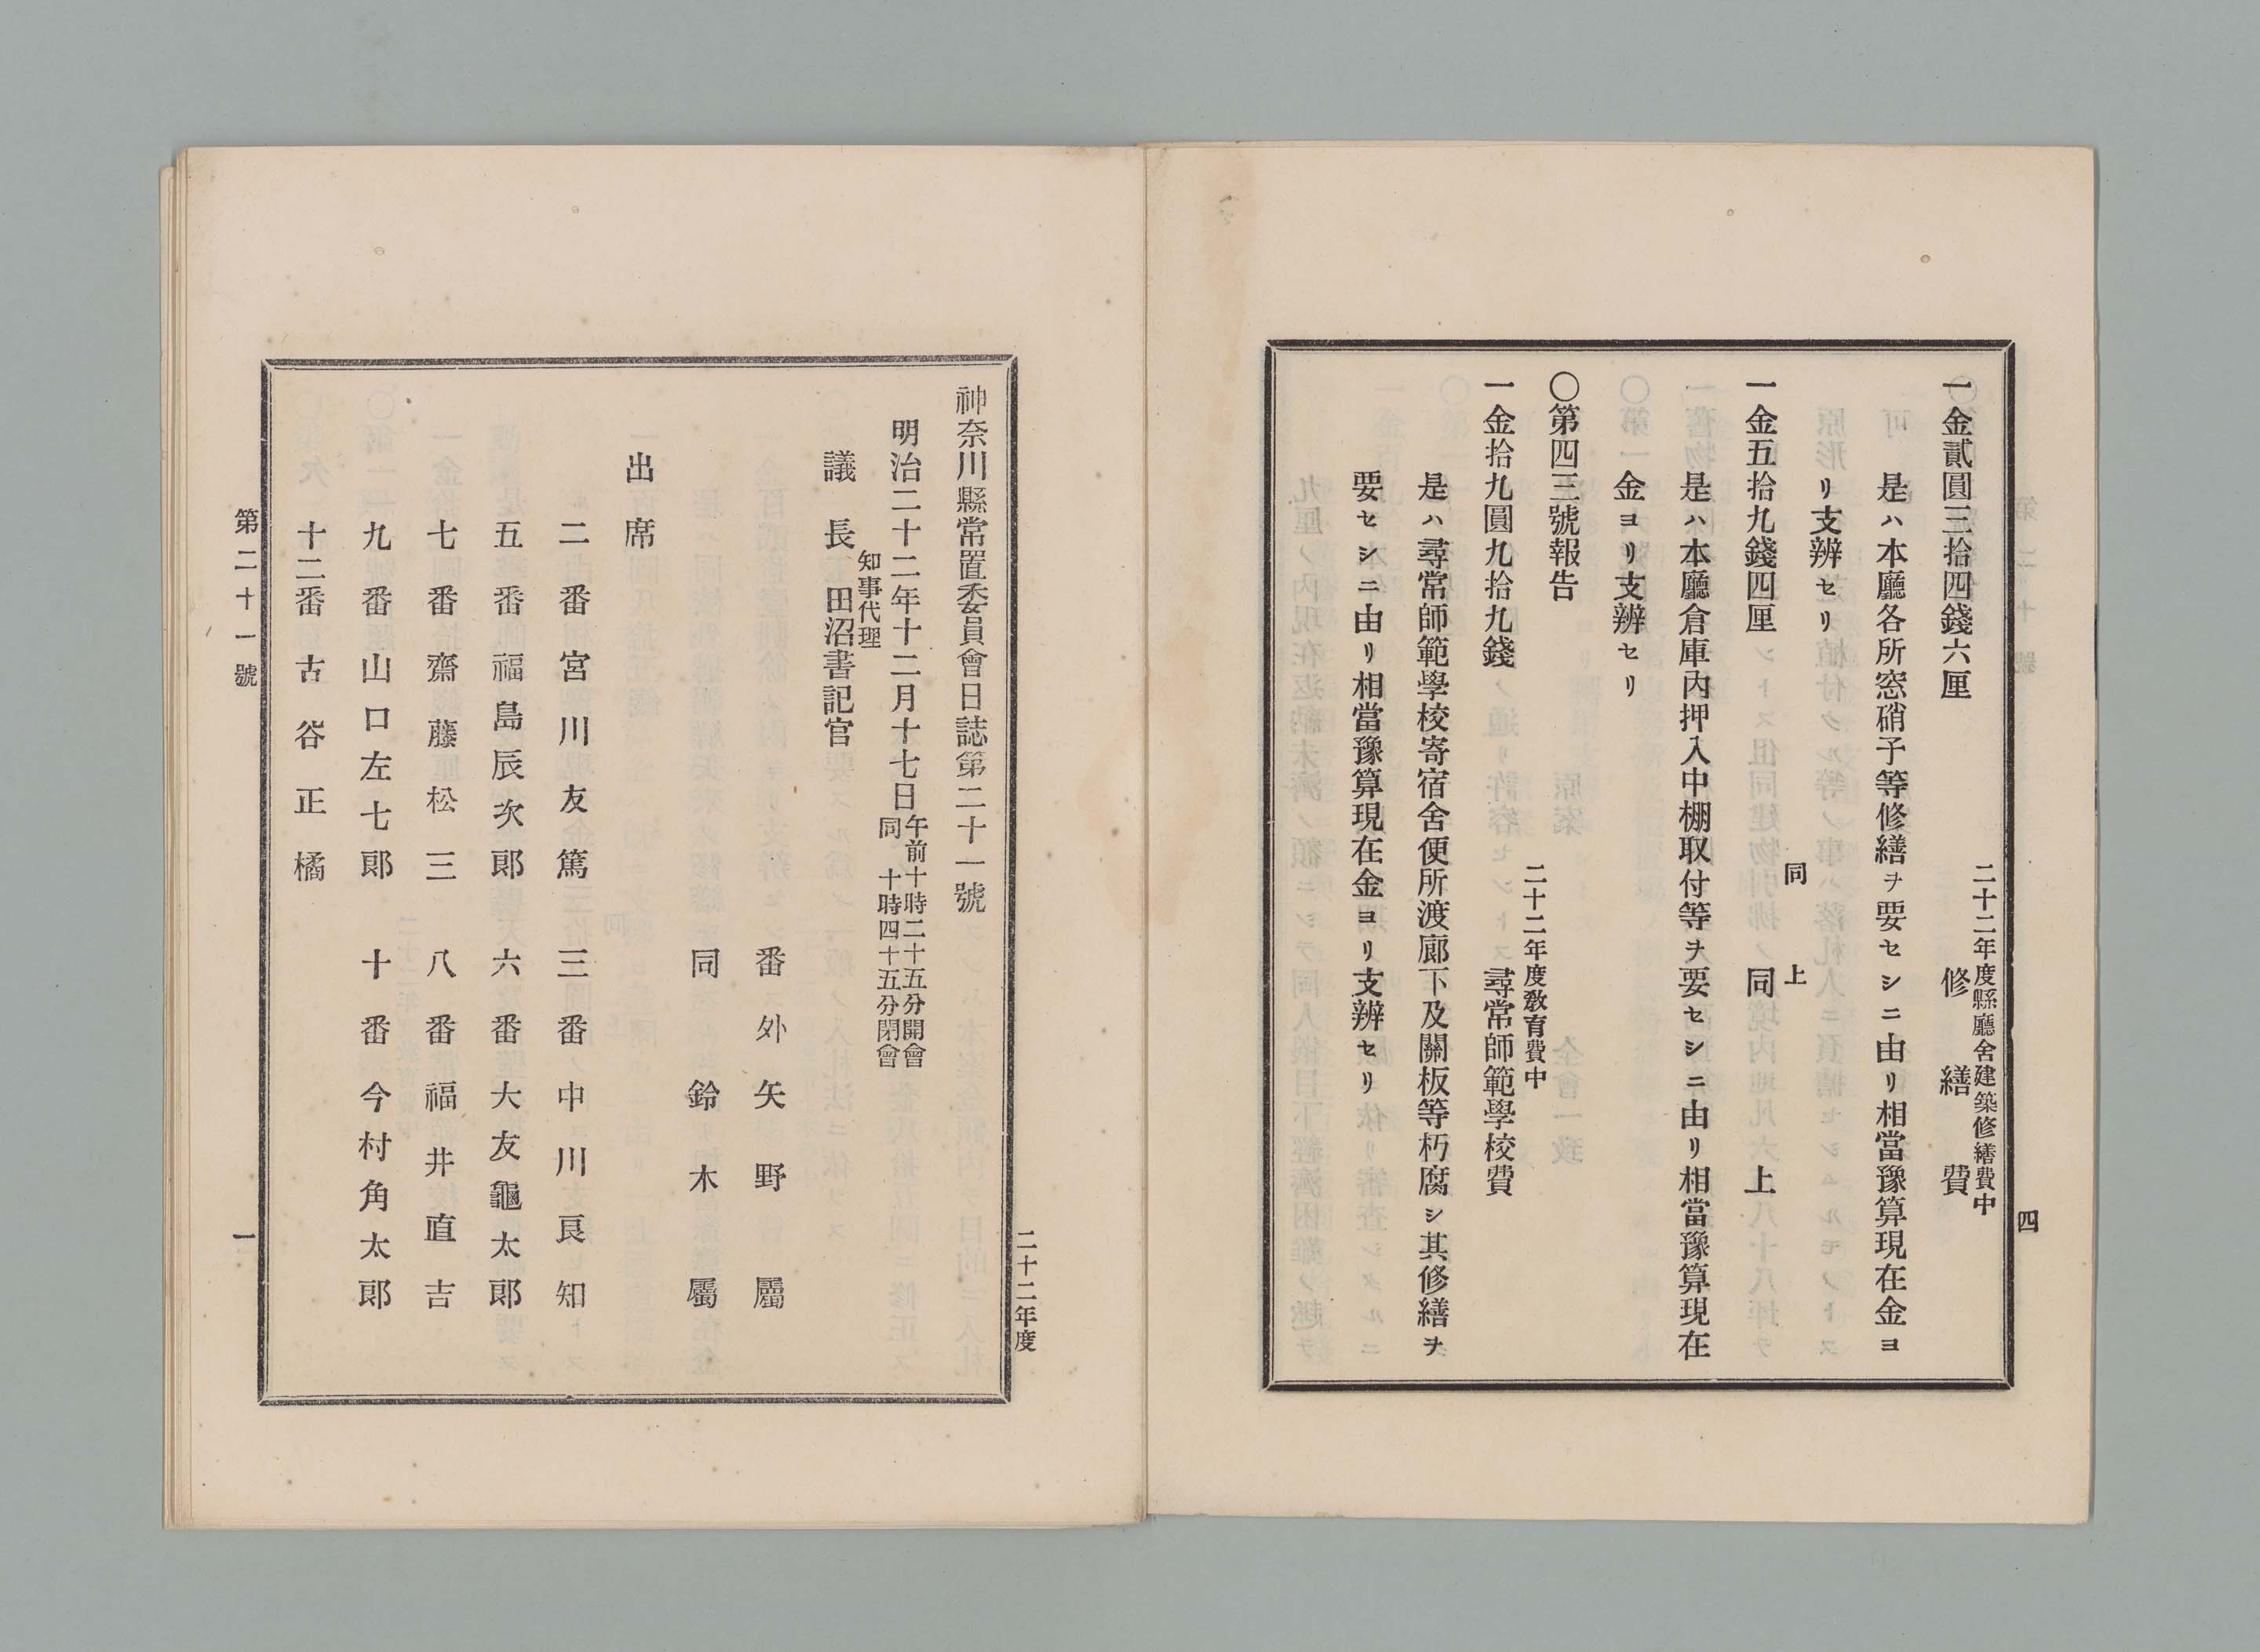 四
一金貳圓三拾四錢六厘
二十二年度縣廳舍建築修繕費中
修繕費
是ハ本廳各所窓硝子等修繕ヲ要セシニ由リ相當豫算現在金ヨ
リ支辨セリ
一金五拾九錢四厘
同上
同上
是ハ本廳倉庫內押入中棚取付等ヲ要セシニ由リ相當豫算現在
金ヨリ支辨セリ
〇第四三號報告
一金拾九圓九拾九錢
二十二年度敎育費中
尋常師範學校費
是ハ尋常師範學校寄宿舍便所渡廊下及關板等朽腐シ其修繕ヲ
要セシニ由リ相當豫算現在金ヨリ支辨セリ
二十二年度
神奈川縣常置委員會日誌第二十一號
明治二十二年十二月十七日
午前十時二十五分開會
同十時四十五分閉會
知事代理
議長田沼書記官
番外矢野屬
同鈴木屬
出席
二番宮川友篤 三番中川良知
五番福島辰次郎 六番大友龜太郎
七番齋藤松三 八番福井直吉
九番山口左七郎 十番今村角太郎
十二番古谷正橘
第二十一號
一